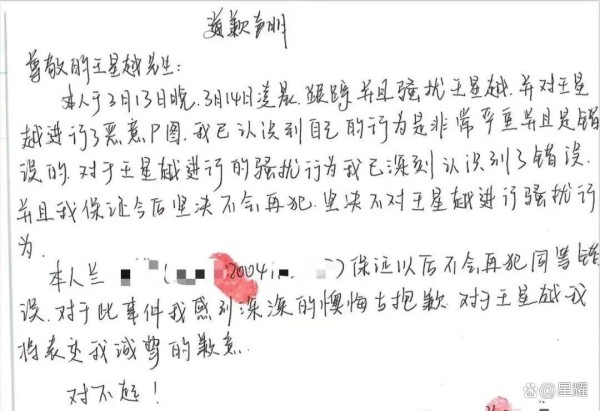 道歉声明
尊敬的王星越先生:
本人于3月13日晚.3月14日凌晨.跟踪并且骚扰王星越.并对王星
越进行了恶意P图.我已认识到自己的行为是非常严重并且是错
误的.对于王星越进行的骚扰行为我已深刻认识到了错误.
并且我保证今后坚决不会再犯.坚决不对王星越进行骚扰行
为.
本人兰 ( 2004 )保证以后不会再犯同等错
误.对于此事件我感到深深的懊悔与抱歉.对于王星越我
将表达我诚挚的歉意.
对不起!
星耀